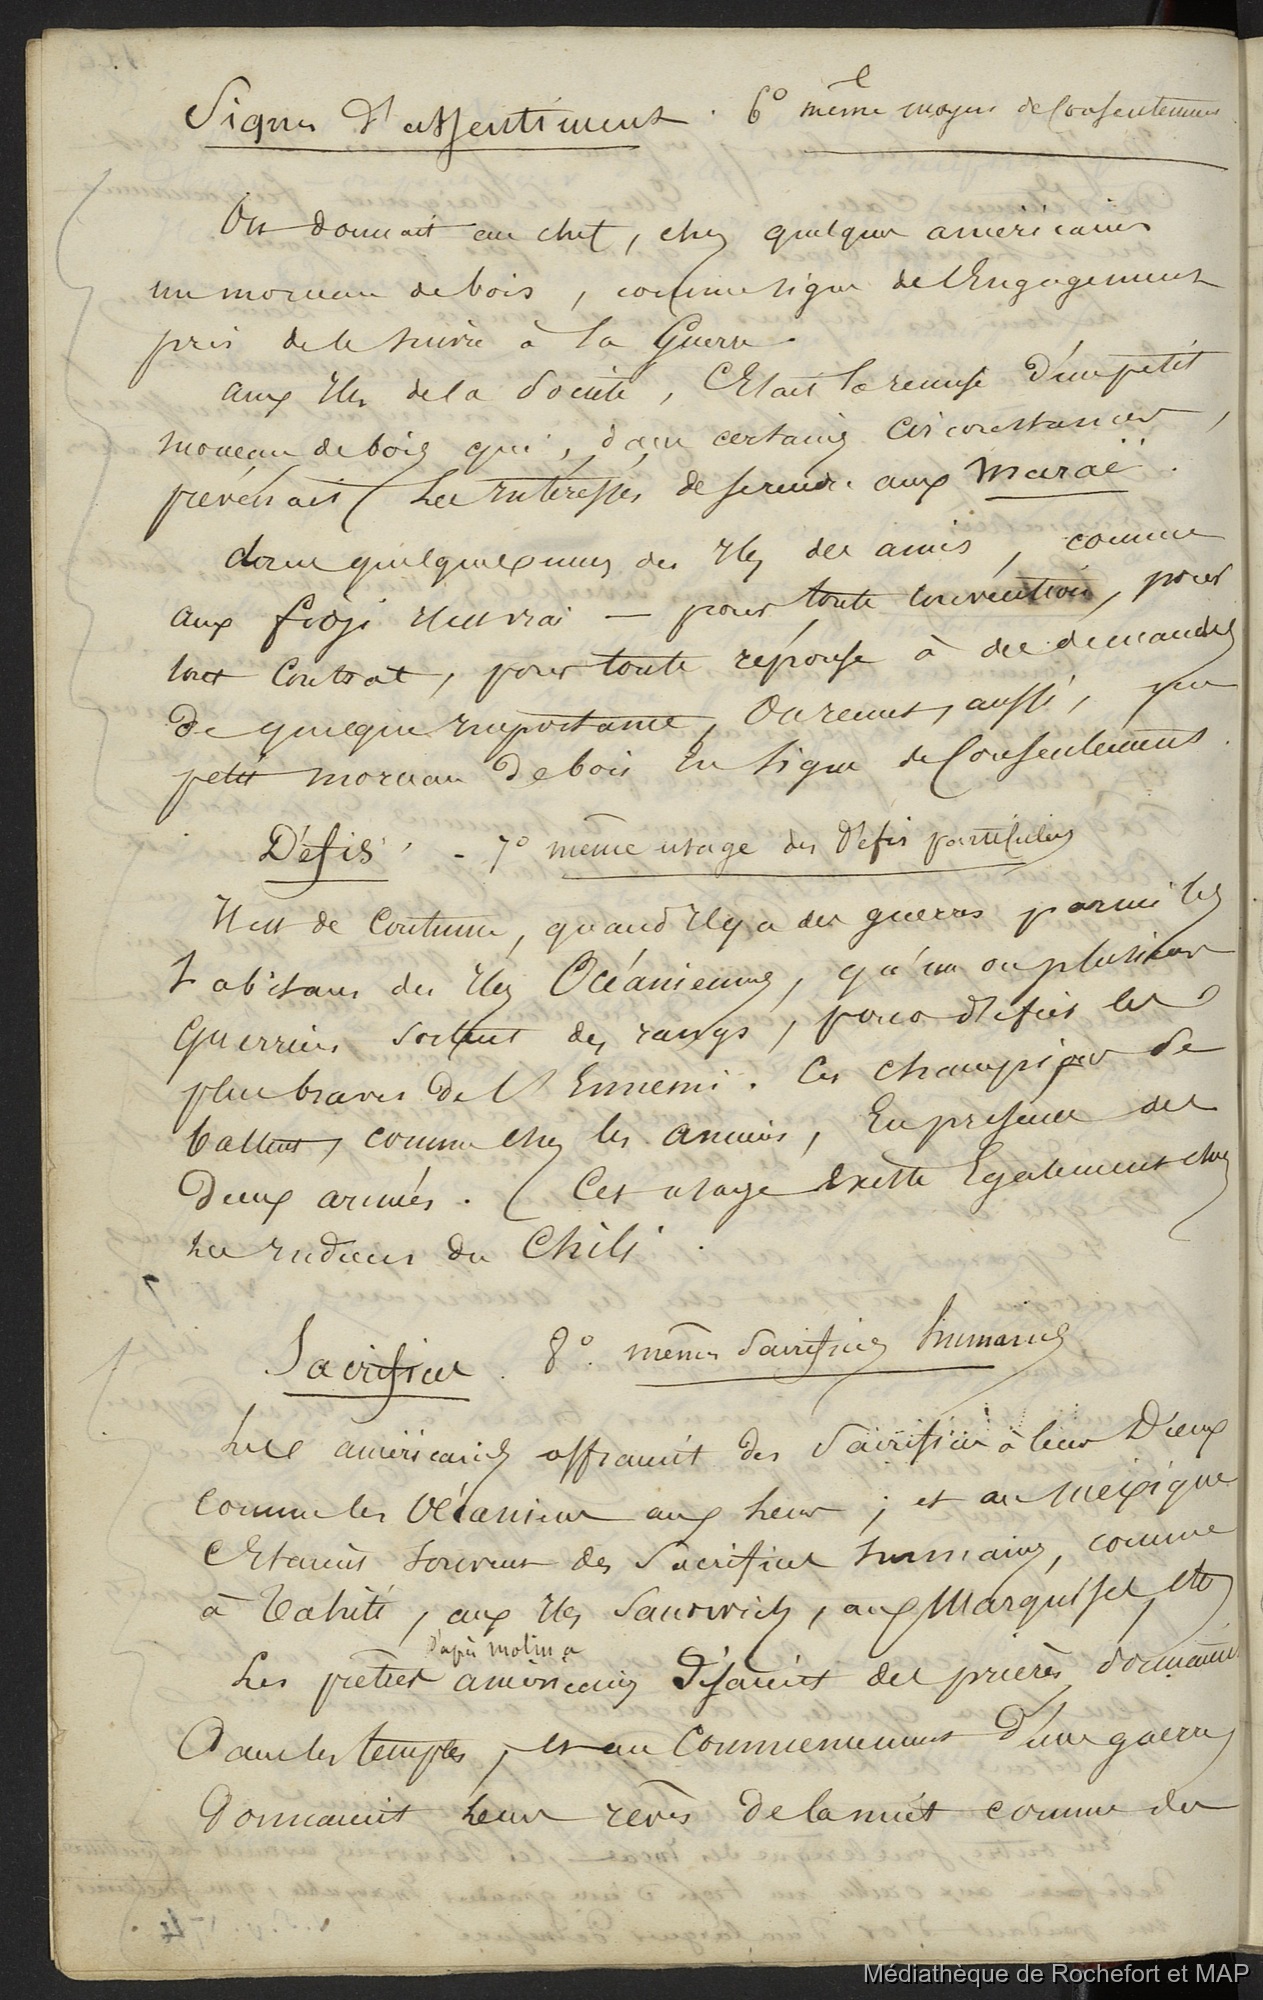 Signes d'assentiment. 6º même moyen de Consentement
On donnait au chef, chez quelques américains
un morceau de bois, comme signe de l'Engagement
pris de le suivre à la Guerre.
aux Iles de la Société, C'Etait la remise d'un petit
morceau de bois qui, dans certaines Circonstances,
prévenait les Intéressés de se rendre aux Maraë.
dans quelques unes des Iles des amis, comme
aux fidji Il est vrai — pour toute convention, pour
tout Contrat, pour toute réponse à des demandes
de quelque Importance, On remet, aussi, un
petit morceau de bois En signe de Consentement.
Défis. - 7º même usage des Défis particuliers
Il est de Coutume, quand Il y a des guerres parmi les
habitans des Iles Océaniennes, qu'un ou plusieurs
Guerriers sortent des rangs, pour défier les
plus braves de l'Ennemi. Ces champions se
battent, comme chez les anciens, En présence des
deux armées. Cet usage Existe Egalement chez
les Indiens du Chili.
Sacrifices. 8º. mêmes Sacrifices humains
Les américains offraient des Sacrifices à leurs Dieux
comme les Océaniens aux leurs; et au Mexique
C'Etaient souvent des Sacrifices humains, comme
à Tahiti, aux Iles Sandwich, aux Marquises, etc
d'après Molina
Les prêtres américains disaient des prières
dans les temples, et au Commencement d'une guerre
donnaient leurs rêves de la nuit comme des
Médiathèque de Rochefort et MAP